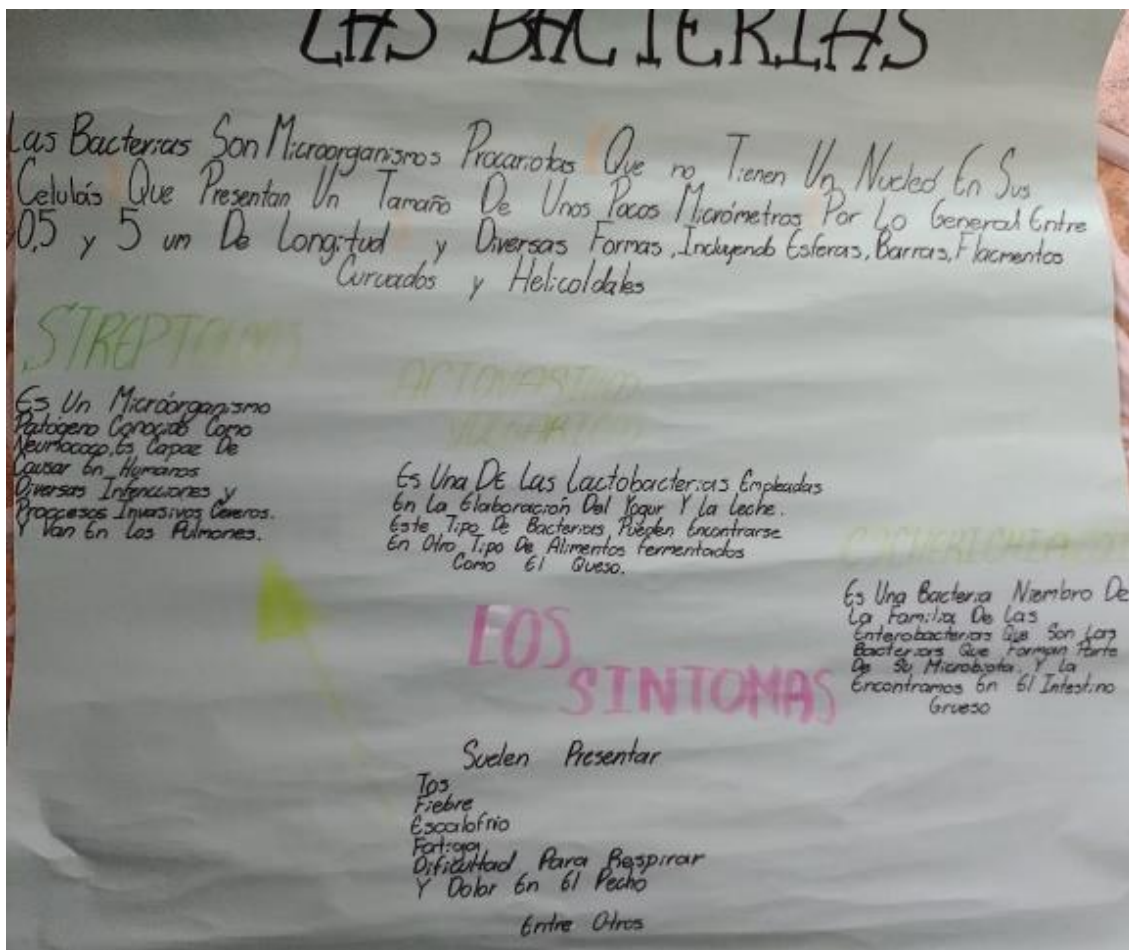 LAS BACTERIAS
Las Bacterias Son Microorganismos Procariotas Que no Tienen Un Nucleo En Sus
Celulás Que Presentan Un Tamaño De Unos Pocos Micrómetros Por Lo General Entre
0,5 y 5 um De Longitud y Diversas Formas, Incluyendo Esferas, Barras, Flacmentos
Curvados y Helicoldales
Es Un Micróorganismo
Patógeno Conocido Como
Neumococo, Es Capae De
Causar En Humanos
Diversas Infencciones y
Proccesos Invasivos Ceveros.
Y Van En Los Pulmones.
Es Una De Las Lactobacterias Empleadas
En La Elaboración Del Yogur Y La leche.
Este Tipo De Bacterias Pueden Encontrarse
En Otro Tipo De Alimentos fermentados
Como El Queso.
Es Una Bacteria Niembro De
La Familia De Las
Enterobacterias Que Son Las
Bacterias Que Forman Parte
De Su Microbiota Y La
Encontramos En El Intestino
Grueso
LOS
SINTOMAS
Suelen Presentar
Tos
Fiebre
Escalofrio
Fatiga
Dificultad Para Respirar
Y Dolor En El Pecho
Entre Otros